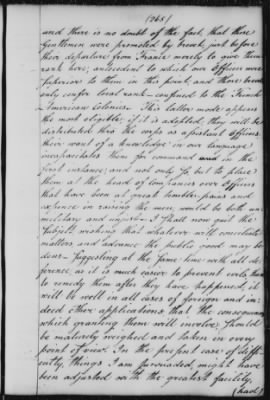 (268)
and there is no doubt of the fact, that those
Gentlemen were promoted by brevet just before
their departure from France merely to give them
rank here; antecedent to which our Officers were
superior to them in this point, and those brevets
only confer local rank—confined to the French
American Colonies. This latter mode appears
the most eligible; if it is adopted, they will be
distributed thro the corps as assistant Officers.
their want of a knowledge in our language
incapacitates them for command in the
first instance; and not only so but to place
them at the head of Companies over Officers
that have been at great trouble, pains and
expence in raising the men would be both un-
military and unjust. I shall now quit the
subject wishing that whatever will conciliate
matters and advance the public good may be
done. Suggesting at the same time with all de-
ference, as it is much easier to prevent evils, than
to remedy them after they have happened, it
will be well in all cases of foreign and in-
deed other applications that the consequences
which granting them will involve, should
be maturely weighed and taken in every
point of view. In the present case of diffi-
culty, things I am persuaded, might have
been adjusted with the greatest facility,
(had)